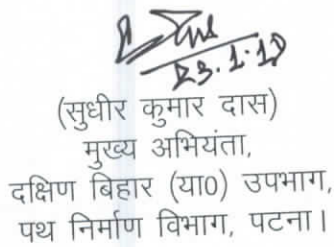 23.1.18
(सुधीर कुमार दास)
मुख्य अभियंता,
दक्षिण बिहार (या0) उपभाग,
पथ निर्माण विभाग, पटना।